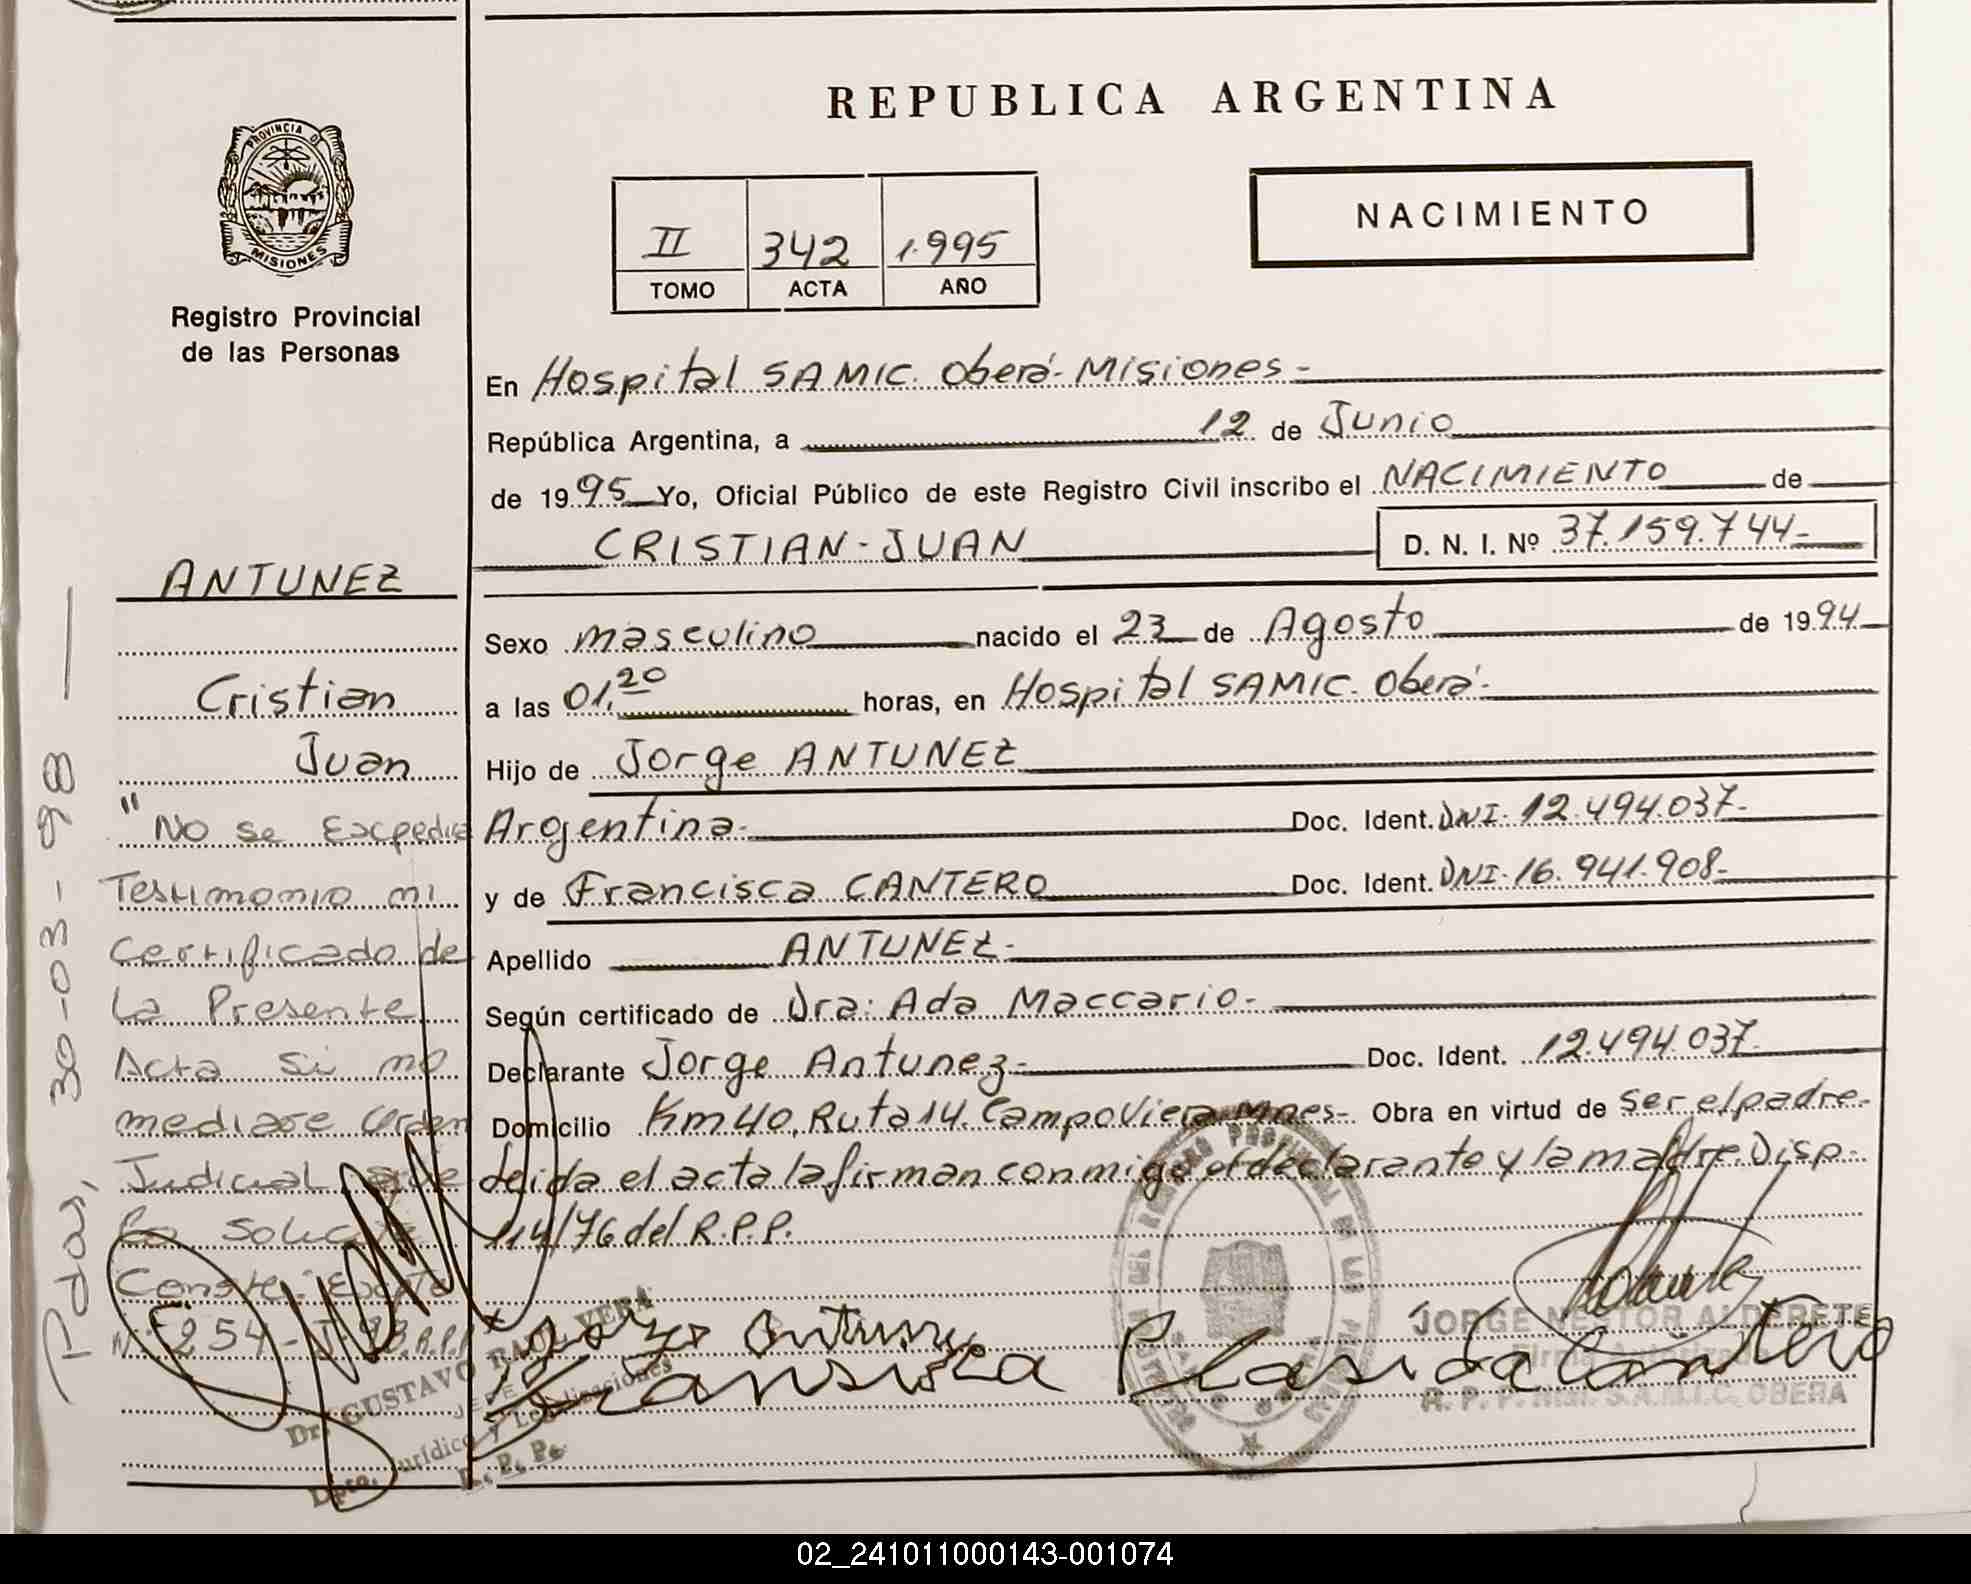 REPUBLICA ARGENTINA
PROVINCIA DE
MISIONES
Registro Provincial
de las Personas
NACIMIENTO
II 342 1.995
TOMO ACTA AÑO
En Hospital SAMIC. Oberá-Misiones-
República Argentina, a 12 de Junio
de 1995 Yo, Oficial Público de este Registro Civil inscribo el NACIMIENTO de
CRISTIAN-JUAN D. N. I. Nº 37.159.744-
Sexo masculino nacido el 23 de Agosto de 1994
a las 01,20 horas, en Hospital SAMIC. Oberá-
Hijo de Jorge ANTUNEZ
Argentina- Doc. Ident. DNI-12.494.037-
y de Francisca CANTERO Doc. Ident. DNI-16.941.908-
Apellido ANTUNEZ-
Según certificado de Dra: Ada Maccario-
Declarante Jorge Antunez- Doc. Ident. 12.494.037-
Domicilio Km 40, Ruta 14. Campo Viera Mnes- Obra en virtud de ser el padre-
Leida el acta la firman conmigo el declarante y la madre. Disp-
114/76 del R.P.P.
ANTUNEZ
Cristian
Juan
"No se Expedira
Testimonio ni
Certificado de
La Presente
Acta Si no
mediare Orden
Judicial que
lo Solicite
Conste: Expte
Nº 254-
Pdas, 30-03-98
Jorge Antunez
Fransiska Plasida Cantero
Dr. GUSTAVO RAUL VERA
JEFE
Dpto. Jurídico y
R. P. P.
JORGE NESTOR ALDERETE
Firma Autorizada
R. P. P. S.A.M.I.C. OBERA
02_241011000143-001074